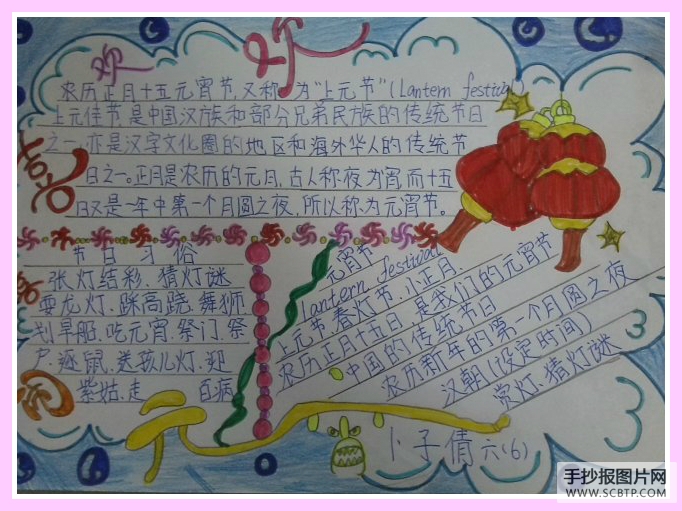 欢
农历正月十五元宵节,又称为“上元节”(Lantern festival
上元佳节是中国汉族和部分兄弟民族的传统节日
之一,亦是汉字文化圈的地区和海外华人的传统节
日之一。正月是农历的元月,古人称夜为宵,而十五
日又是一年中第一个月圆之夜,所以称为元宵节。
节日习俗
张灯结彩.猜灯谜
耍龙灯.踩高跷.舞狮
划旱船.吃元宵.祭门.祭
户.逐鼠.送孩儿灯.迎
紫姑.走 百病
元宵节
lantern festival
上元节春灯节.小正月.
农历正月十五日 是我们的元宵节
中国的传统节日
农历新年的第一个月圆之夜
汉朝(设定时间)
赏灯.猜灯谜
卜子倩 六(6)
手抄报图片网
WWW.SCBTP.COM